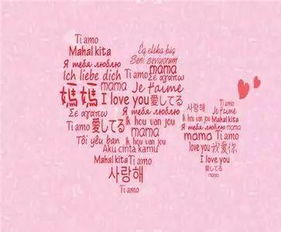 Ti amo
Mahal kita
Я тебя люблю
Ich liebe dich
Σε αγαπώ
媽媽
Ti amo 愛してる
Я тебя люблю
Tôi yêu bạn
Aku cinta kamu
Mahal kita Ti amo
사랑해
Ti amo
Ég elska þig
Ben seviyorum
mama
Ti amo Σε αγαπώ
mama Je t'aime
I love you 愛してる
Ti amo
Ik hou van jou
mama
Ik hou van jou
사랑해
Je t'aime
Ti amo
Ik hou van jou Mahal kita
Я тебя люблю mama
mama Ti amo
I love you 我愛你
I love you
愛してる
mama